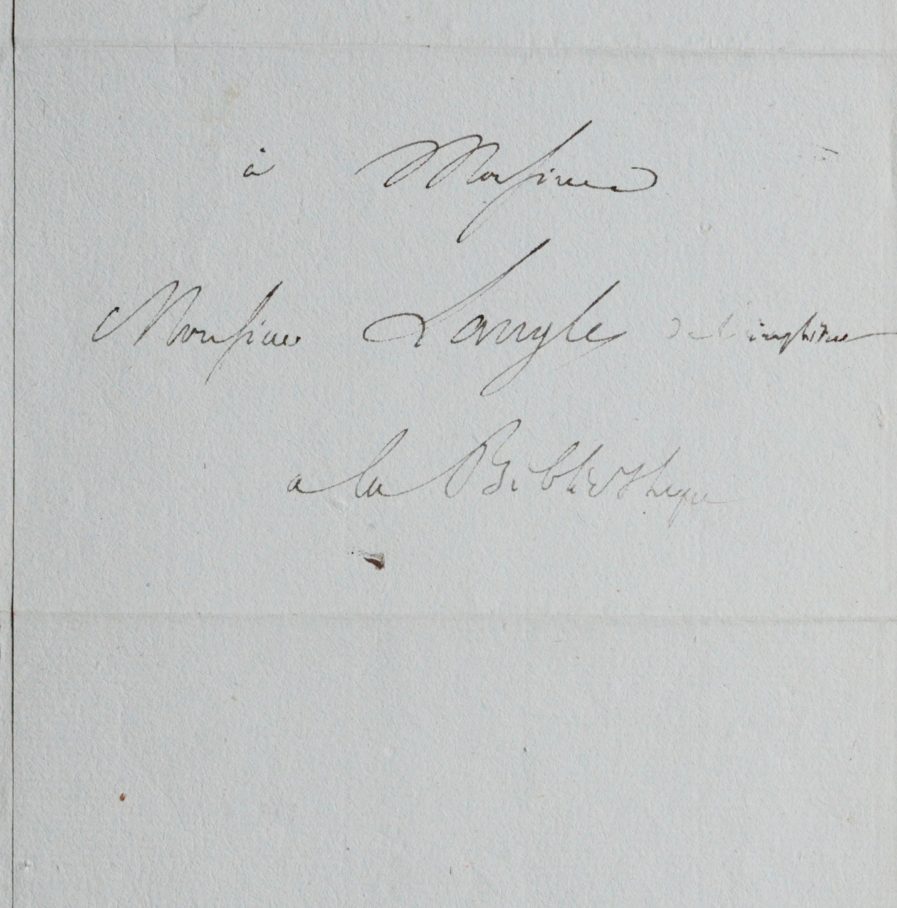 à Monsieur
Monsieur Langles de l'institut
a la Bibliotheque